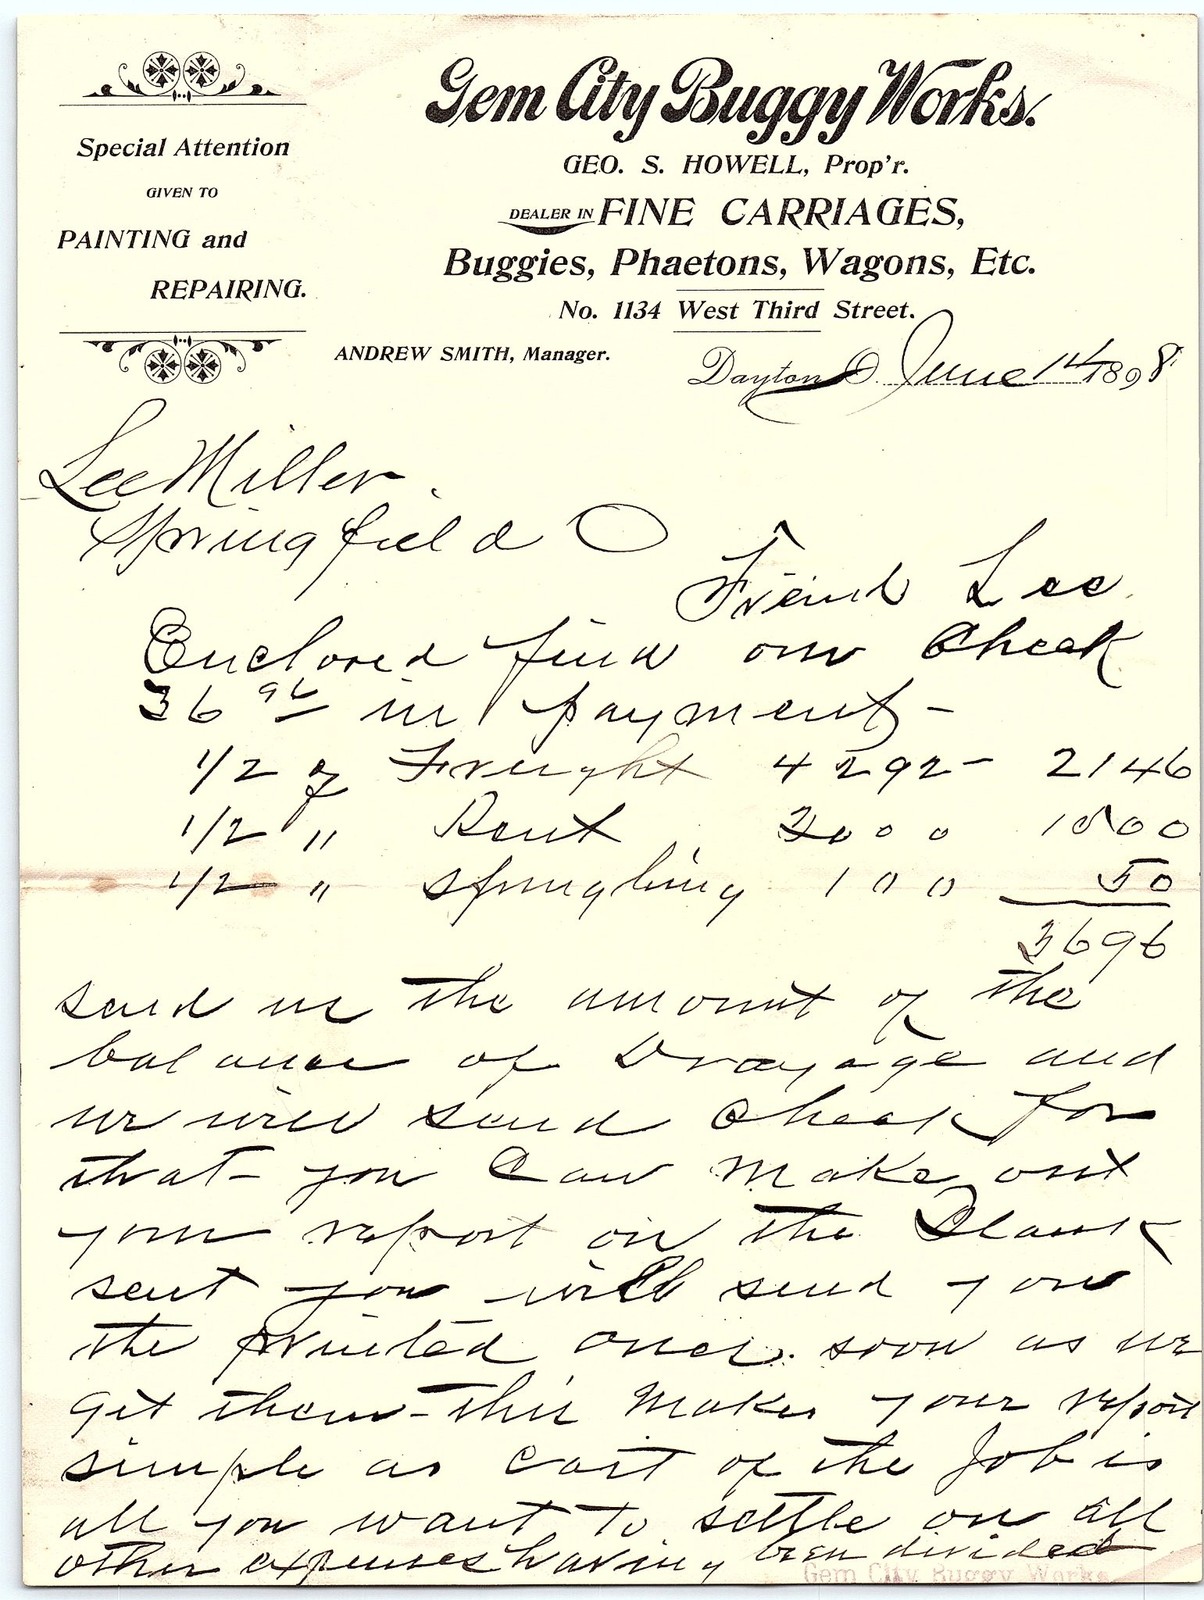 Gem City Buggy Works.
GEO. S. HOWELL, Prop'r.
DEALER IN FINE CARRIAGES,
Buggies, Phaetons, Wagons, Etc.
No. 1134 West Third Street.
Special Attention
GIVEN TO
PAINTING and
REPAIRING.
ANDREW SMITH, Manager.
Dayton O. June 14 1898
Lee Miller.
Springfield O
Friend Lee.
Enclosed find our Check
36 96 in payment -
1/2 of Freight 4292 - 2146
1/2 " Rent 2000 1000
1/2 " 100 50
3696
send us the amount of the
balance of Drayage and
we will send Check for
that - you Can make out
your report on the Blank
sent you will send you
the printed ones. soon as we
get them - this makes your report
simple as Cost of the Job is
all you want to settle on all
other expenses having been divided
Gem City Buggy Works